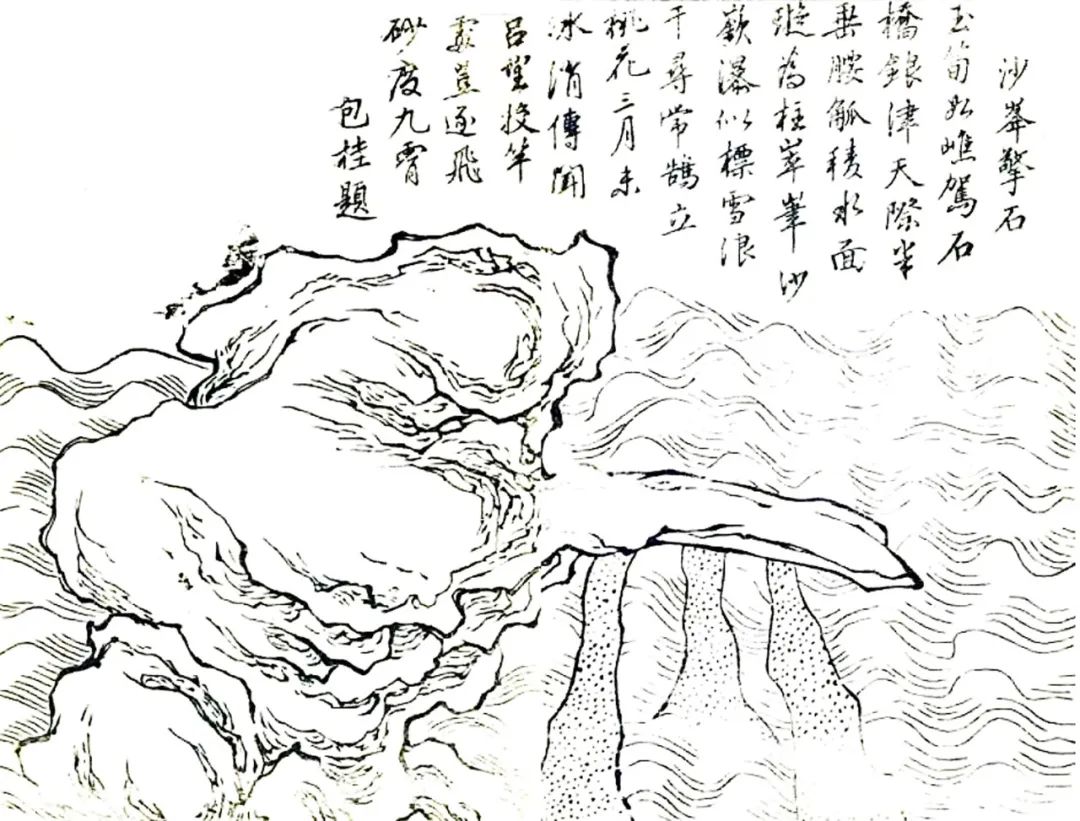 沙峯擎石
玉筍如駕石
橋銀津天際半
垂腰觚稜水面
璇為柱崒峯沙
嶔瀑似標雪浪
千尋常鵠立
桃花三月未
冰消傳聞
呂望投竿
處豈逐飛
砂度九霄
包桂題